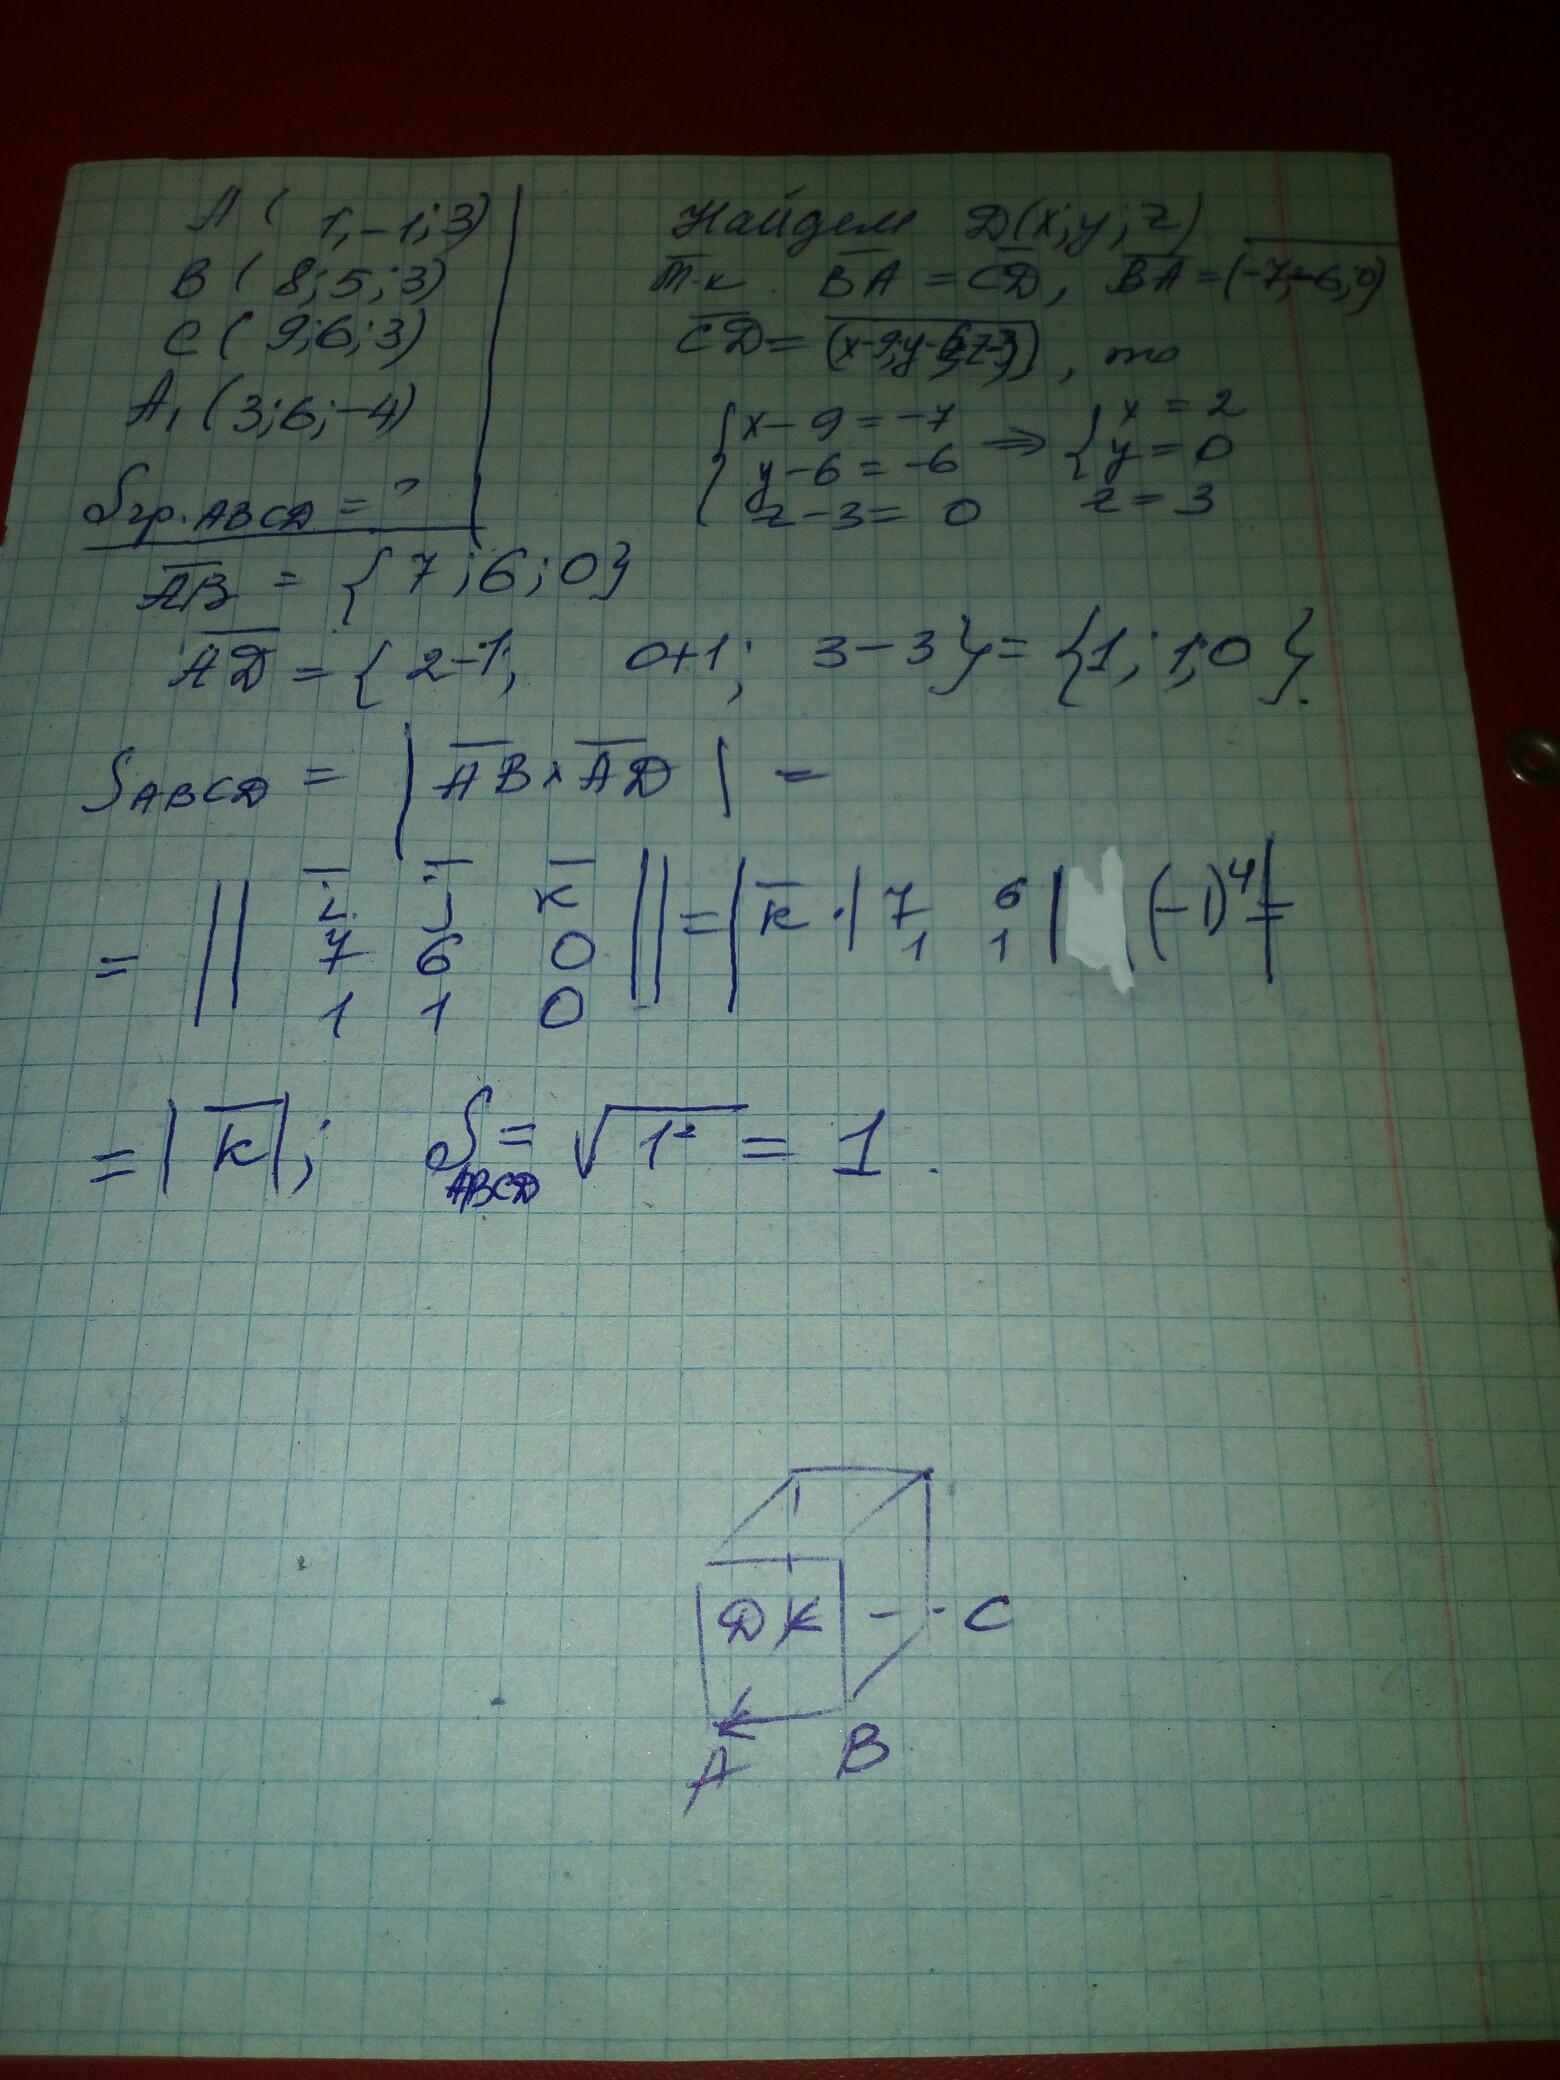 A ( 1; -1; 3)
B ( 8; 5; 3)
C ( 9; 6; 3)
A₁ (3; 6; -4)
Sгр. ABCD = ?
Найдем D(x; y; z)
т.к. BA = CD, BA = (-7; -6; 0)
CD = (x-9; y-6; z-3), то
{ x - 9 = -7
y - 6 = -6
z - 3 = 0
⇒ { x = 2
y = 0
z = 3
AB = { 7; 6; 0}
AD = { 2-1; 0+1; 3-3} = {1; 1; 0}.
S ABCD = | AB × AD | =
= || i j k
7 6 0
1 1 0 || = | k · | 7 6
1 1 | (-1)⁴ | =
= | k |; S ABCD = √1² = 1.
D K C
A B